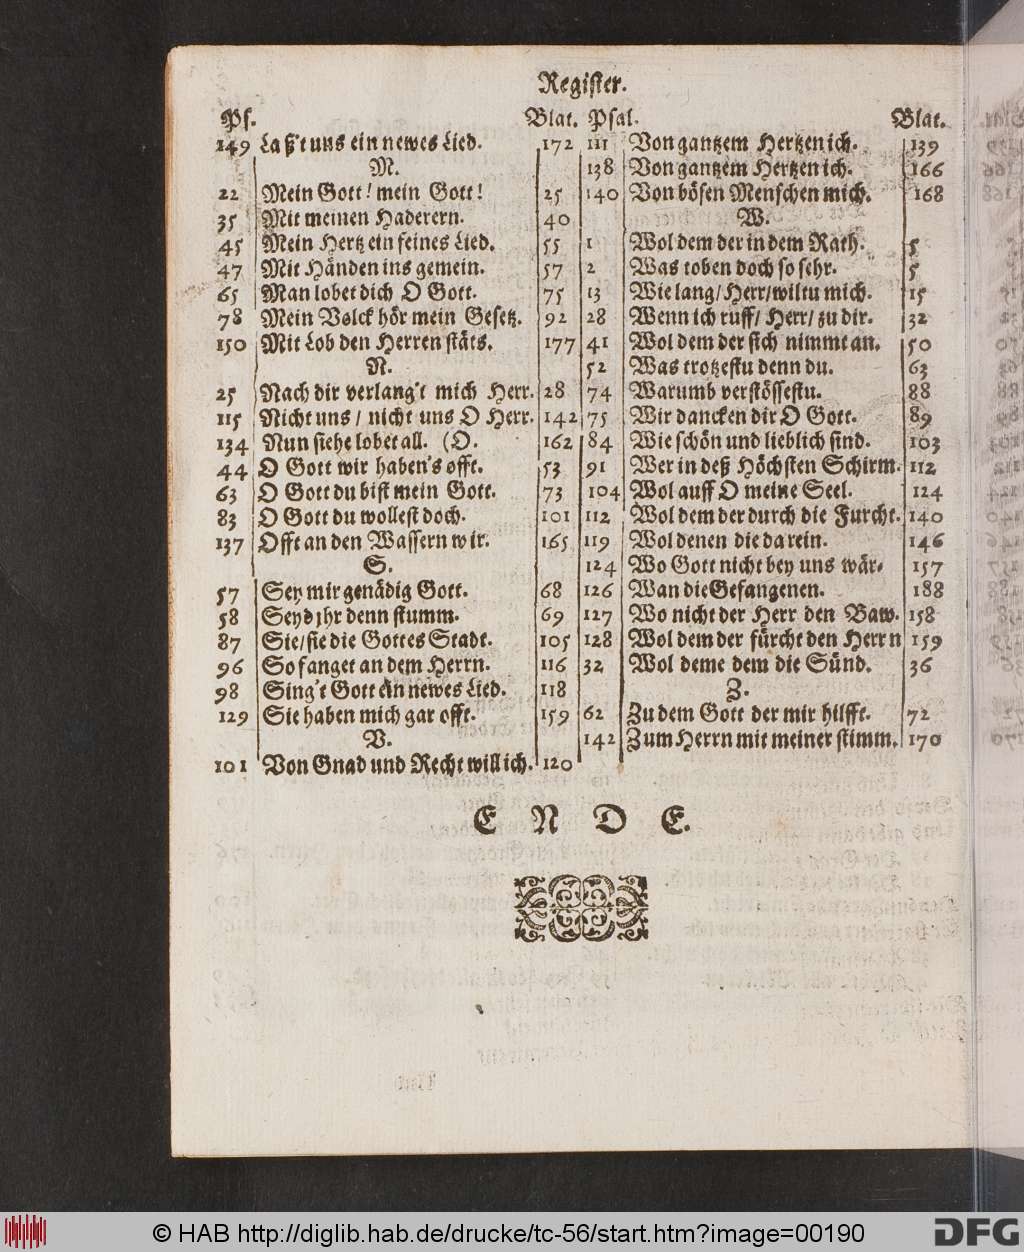 Register.
Ps. Blat.
149 Laß't uns ein newes Lied. 172
M.
22 Mein Gott! mein Gott! 25
35 Mit meinen Haderern. 40
45 Mein Hertz ein feines Lied. 55
47 Mit Händen ins gemein. 57
65 Man lobet dich O Gott. 75
78 Mein Volck hör mein Gesetz. 92
150 Mit Lob den Herren stäts. 177
N.
25 Nach dir verlang't mich Herr. 28
115 Nicht uns / nicht uns O Herr. 142
134 Nun siehe lobet all. (O. 162
44 O Gott wir haben's offt. 53
63 O Gott du bist mein Gott. 73
83 O Gott du wollest doch. 101
137 Offt an den Wassern wir. 165
S.
57 Sey mir genädig Gott. 68
58 Seyd jhr denn stumm. 69
87 Sie/ sie die Gottes Stadt. 105
96 So fanget an dem Herrn. 116
98 Sing't Gott ein newes Lied. 118
129 Sie haben mich gar offt. 159
V.
101 Von Gnad und Recht will ich. 120
Psal. Blat.
111 Von gantzem Hertzen ich. 139
138 Von gantzem Hertzen ich. 166
140 Von bösen Menschen mich. 168
W.
1 Wol dem der in dem Rath. 5
2 Was toben doch so sehr. 5
13 Wie lang/ Herr/ wiltu mich. 15
28 Wenn ich ruff/ Herr/ zu dir. 32
41 Wol dem der sich nimmt an. 50
52 Was trotzestu denn du. 63
74 Warumb verstössestu. 88
75 Wir dancken dir O Gott. 89
84 Wie schön und lieblich sind. 103
91 Wer in deß Höchsten Schirm. 112
104 Wol auff O meine Seel. 124
112 Wol dem der durch die Furcht. 140
119 Wol denen die da rein. 146
124 Wo Gott nicht bey uns wär⸗ 157
126 Wan die Gefangenen. 188
127 Wo nicht der Herr den Baw. 158
128 Wol dem der fürcht den Herrn 159
32 Wol deme dem die Sünd. 36
Z.
62 Zu dem Gott der mir hilfft. 72
142 Zum Herrn mit meiner stimm. 170
E N D E.
© HAB http://diglib.hab.de/drucke/tc-56/start.htm?image=00190
DFG